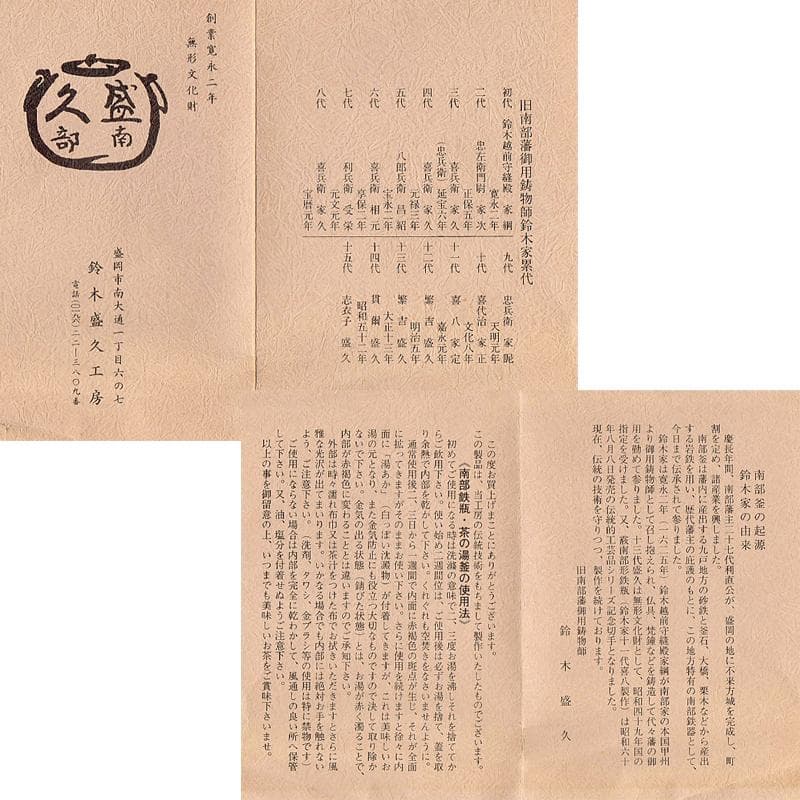 創業寛永二年
無形文化財
盛
久
南
部
盛岡市南大通一丁目六の七
鈴木盛久工房
電話(〇一九六)二二―三八〇九番
旧南部藩御用鋳物師鈴木家累代
初代 鈴木越前守縫殿 家綱
寛永二年
二代 忠左衛門尉 家次
正保五年
三代 喜兵衛 家久
(忠兵衛)延宝六年
四代 喜兵衛 家久
元禄三年
五代 八郎兵衛 昌紹
宝永二年
六代 喜兵衛 相元
享保二年
七代 利兵衛 受栄
元文元年
八代 喜兵衛 家久
宝暦元年
九代 忠兵衛 家毘
天明元年
十代 喜代治 家正
文化八年
十一代 喜八 家定
嘉永元年
十二代 繁吉 盛久
明治五年
十三代 繁吉 盛久
大正十三年
十四代 貫爾 盛久
昭和五十二年
十五代 志衣子 盛久
南部釜の起源
鈴木家の由来
慶長年間、南部藩主二十七代利直公が、盛岡の地に不来方城を完成し、町
割を定め、諸産業を興しました。
南部釜は藩内に産出する九戸地方の砂鉄と釜石、大橋、栗木などから産出
する岩鉄を用い、歴代藩主の庇護のもとに、この地方特有の南部鉄器として、
今日まで伝承されて参りました。
鈴木家は寛永二年(一六二五年)鈴木越前守縫殿家綱が南部家の本国甲州
より御用鋳物師として召し抱えられ、仏具、梵鐘などを鋳造して代々藩の御
用を勤めて参りました。十三代盛久は無形文化財として、昭和四十九年国の
指定を受けました。又、萩南部形鉄瓶(鈴木家十一代喜八製作)は昭和六十
年八月八日発売の伝統的工芸品シリーズ記念切手となりました。
現在、伝統の技術を守りつつ、製作を続けております。
旧南部藩御用鋳物師
鈴木盛久
この度お買上げまことにありがとうございます。
この製品は、当工房の伝統技術をもちまして製作いたしたものでございます。
《南部鉄瓶・茶の湯釜の使用法》
初めてご使用になる時は洗滌の意味で二、三度お湯を沸しそれを捨ててか
らご飲用下さい。使い始め二週間位は、ご使用後は必ずお湯を捨て、蓋を取
り余熱で内部を乾かして下さい。くれぐれも空焚きをなさいませんように。
通常使用後二、三日から一週間で内面に赤褐色の斑点が生じ、それが全面
に拡ってきますがそのままお使い下さい。さらに使用を続けますと徐々に内
面に「湯あか」(白っぽい沈澱物)が付着してきますが、これは美味しいお
湯の元となり、また金気防止にも役立つ大切なものですので決して取り除か
ないで下さい。金気の出る状態(錆びた状態)とは、お湯が赤く濁ることで、
内部が赤褐色に変わることとは違いますのでご承知下さい。
外部は時々濡れ布巾又は茶汁をつけた布でお拭きいただきますとさらに風
雅な光沢が出てまいります。いかなる場合でも内部には絶対お手を触れない
よう、ご注意下さい。(洗剤、タワシ、金ブラシ等の使用は特に禁物です)
ご使用にならない場合は内部を完全に乾わかして、風通しの良い所へ保管
して下さい。又、油、塩分を付着せぬようご注意下さい。
以上の事を御留意の上、いつまでも美味しいお茶をご賞味下さいませ。